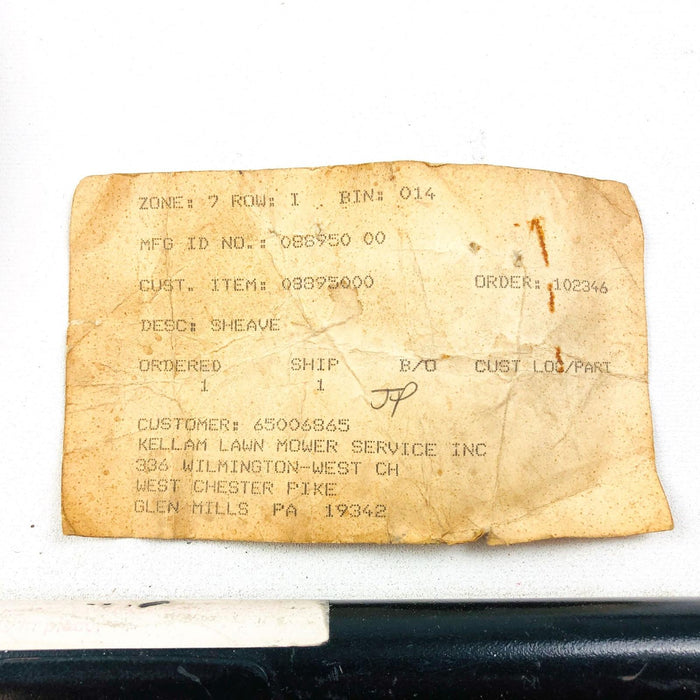 ZONE: 7 ROW: I BIN: 014
MFG ID NO.: 088950 00
CUST. ITEM: 08895000 ORDER: 102346
DESC: SHEAVE
ORDERED SHIP B/O CUST LOC/PART
1 1
JP
CUSTOMER: 65006865
KELLAM LAWN MOWER SERVICE INC
336 WILMINGTON-WEST CH
WEST CHESTER PIKE
GLEN MILLS PA 19342